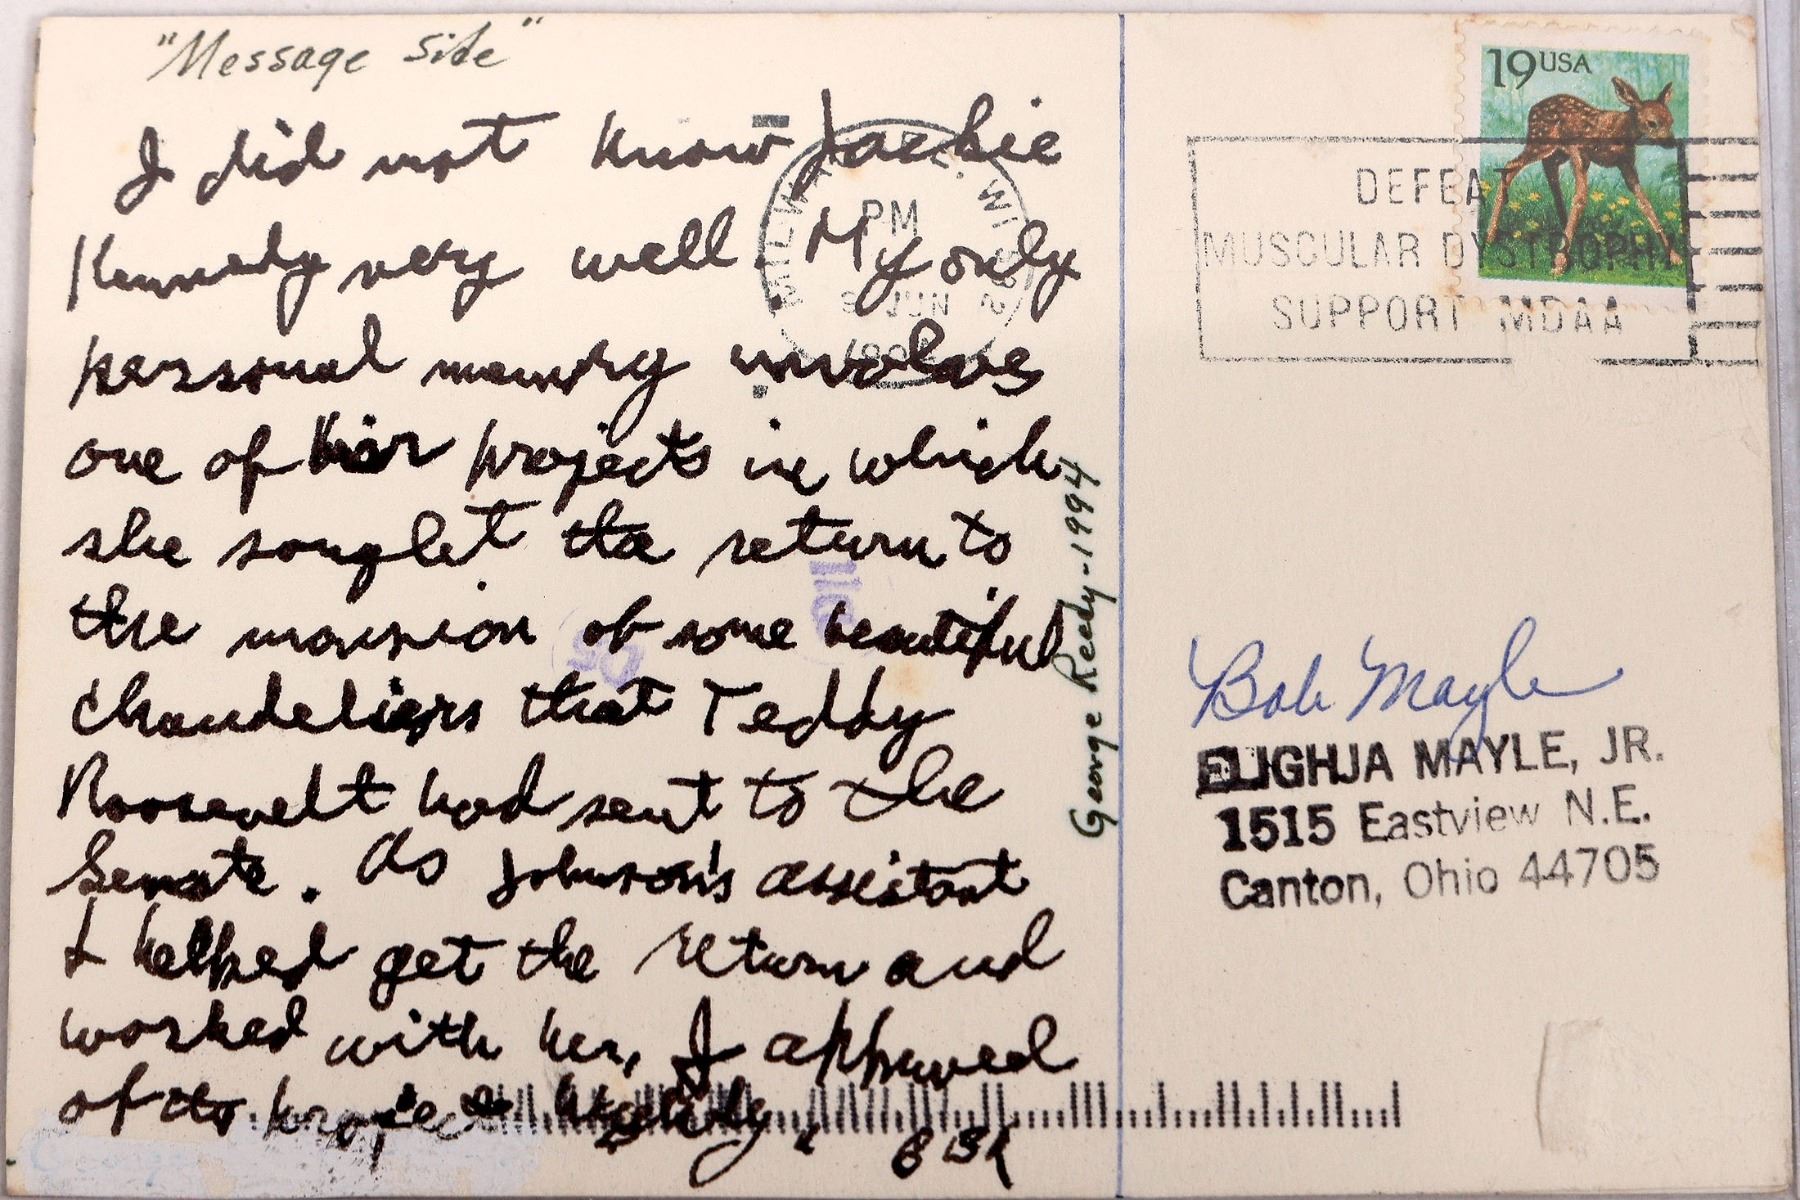 "Message Side"
I did not know Jackie
Kennedy very well. My only
personal memory involves
one of her projects in which
she sought the return to
the mansion of some beautiful
chandeliers that Teddy
Roosevelt had sent to the
Senate. As Johnson's assistant
I helped get the return and
worked with her, I approved
of the project highly.
George Reedy-1994
PM
JUN
19 USA
DEFEAT
MUSCULAR DYSTROPHY
SUPPORT MDAA
Bob Mayle
ELIGHJA MAYLE, JR.
1515 Eastview N.E.
Canton, Ohio 44705